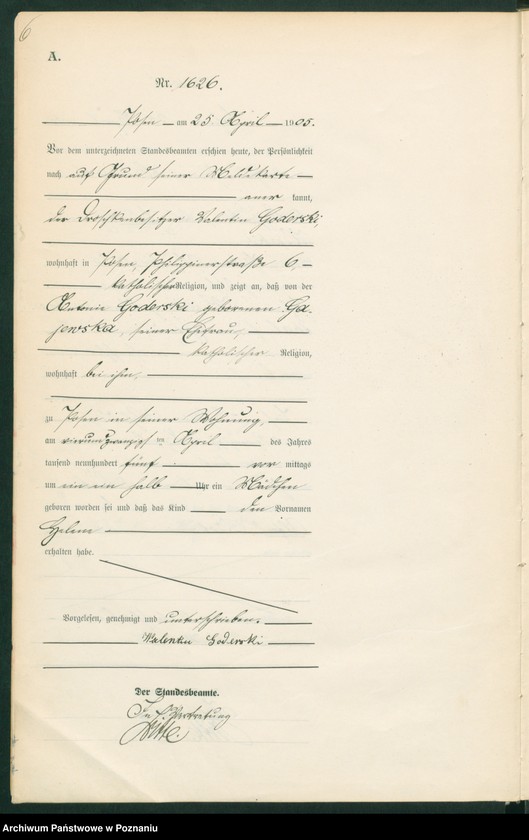 6
A.
Nr. 1626.
Posen am 25 April 1905.
Vor dem unterzeichneten Standesbeamten erschien heute, der Persönlichkeit
nach auf Grund seiner Meldekarte
aner kannt,
der Droschkenbesitzer Valentin Goderski,
wohnhaft in Posen, Philippinerstraße 6,
katholischer Religion, und zeigt an, daß von der
Antonie Goderski geborenen Ga-
jewska, seiner Ehefrau,
katholischer Religion,
wohnhaft bei ihm,
zu Posen in seiner Wohnung,
am vierundzwanzigsten April des Jahres
tausend neunhundert fünf vor mittags
um ein ein halb Uhr ein Mädchen
geboren worden sei und daß das Kind den Vornamen
Helene
erhalten habe.
Vorgelesen, genehmigt und unterschrieben.
Valentin Goderski
Der Standesbeamte.
In Vertretung
Archiwum Państwowe w Poznaniu